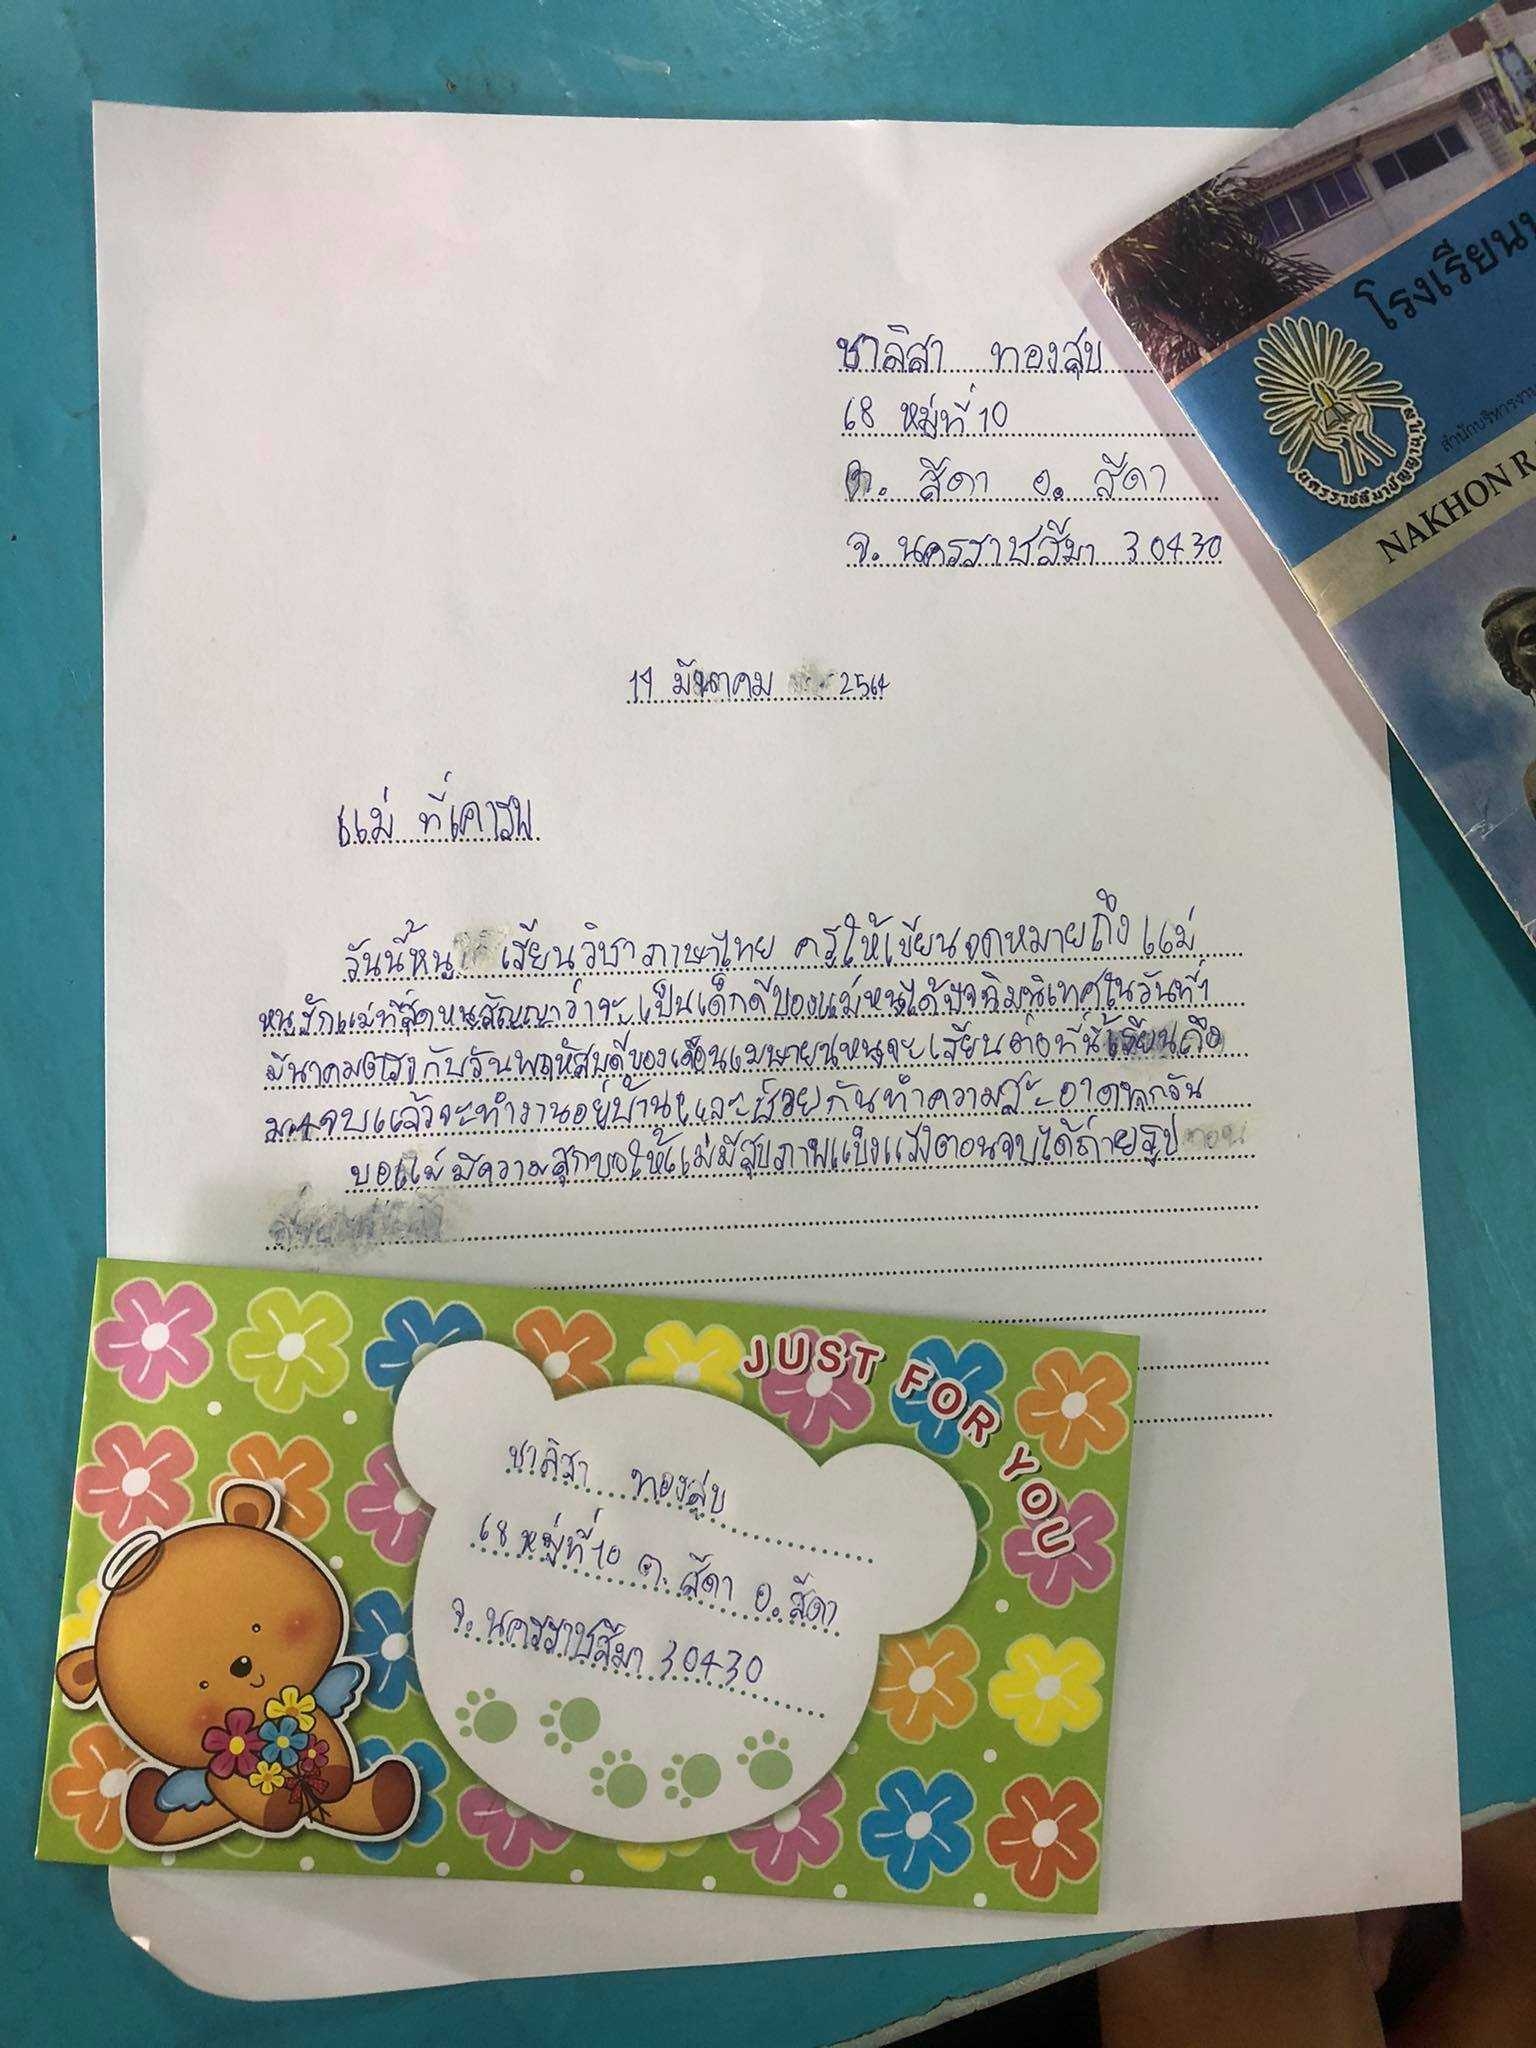 ชาลิสา ทองสุข
68 หมู่ที่ 10
ต. สีดา อ. สีดา
จ. นครราชสีมา 30430
โรงเรียน
สำนักบริหารงาน
นครราชสีมาปัญญานุกูล
NAKHON R
14 มีนาคม 2564
แม่ ที่เคารพ
วันนี้หนู เรียนวิชาภาษาไทย ครูให้เขียนจดหมายถึง แม่
หนูรักแม่ที่สุดหนูสัญญาว่าจะเป็นเด็กดีของแม่หนูได้ปัจฉิมนิเทศในวันที่1
มีนาคมตรงกับวันพฤหัสบดีของเดือนเมษายนหนูจะเรียนต่อที่นี้เรียนถึง
ม.4จบแล้วจะทำงานอยู่บ้านและช่วยกันทำความสะอาดทุกวัน
ขอแม่มีความสุกขอให้แม่มีสุขภาพแข็งแรงตอนจบได้ถ่ายรูป
JUST FOR YOU
ชาลิสา ทองสุข
68 หมู่ที่ 10 ต. สีดา อ. สีดา
จ. นครราชสีมา 30430